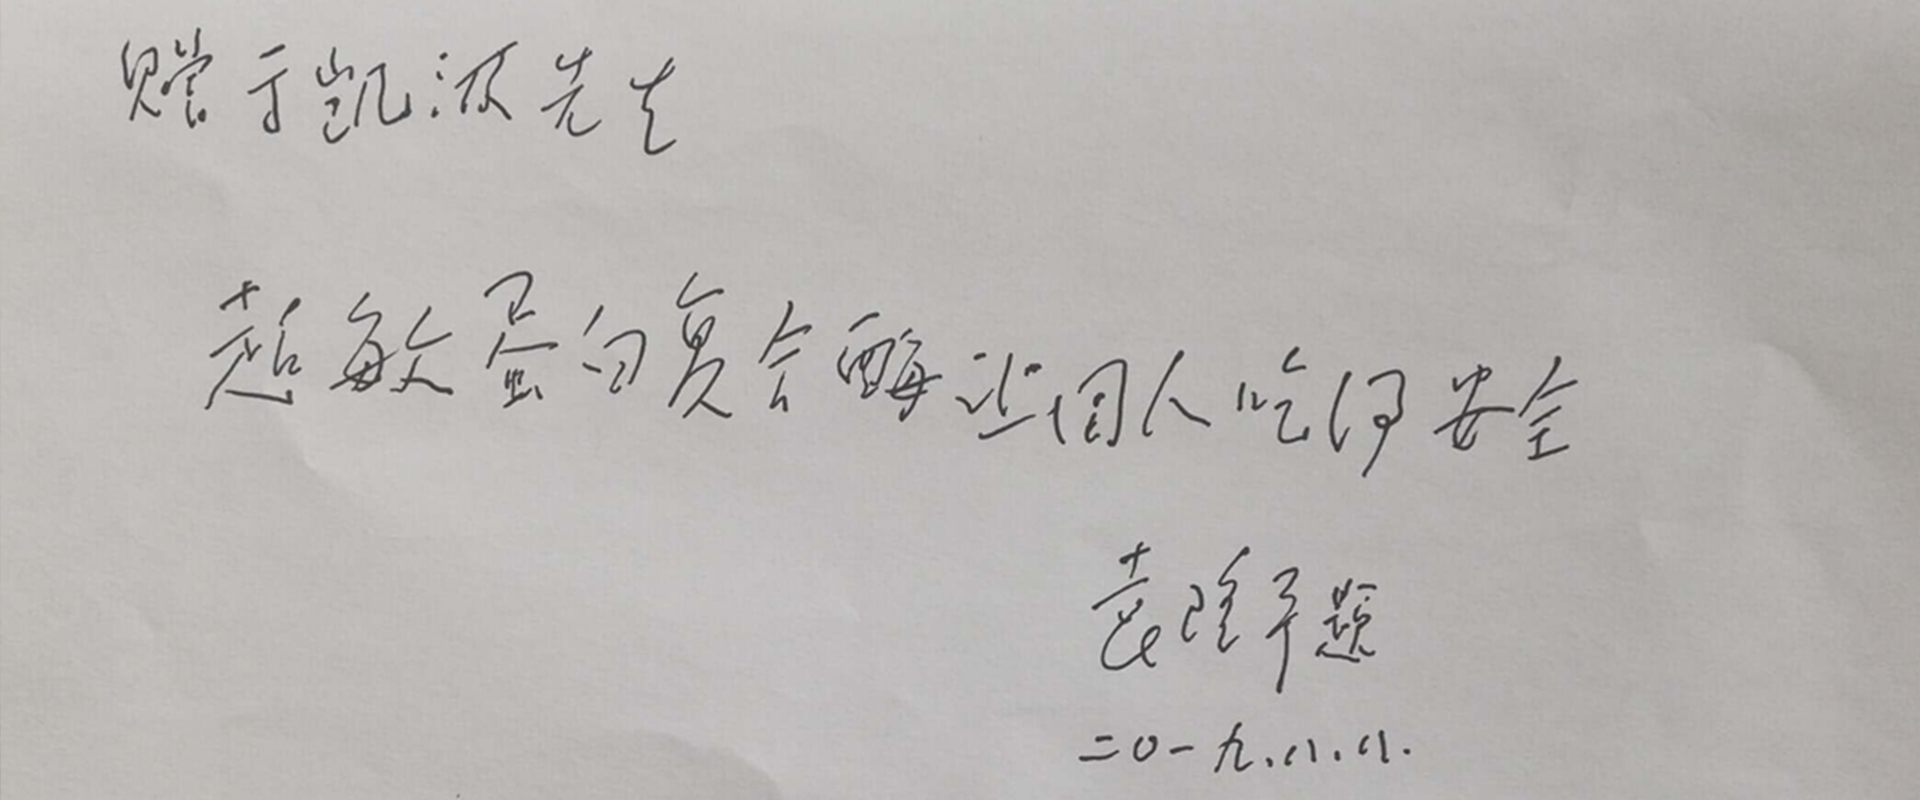 赠于凯波先生
超敏蛋白复合酶让国人吃得安全
袁隆平题
二〇一九.八.八.